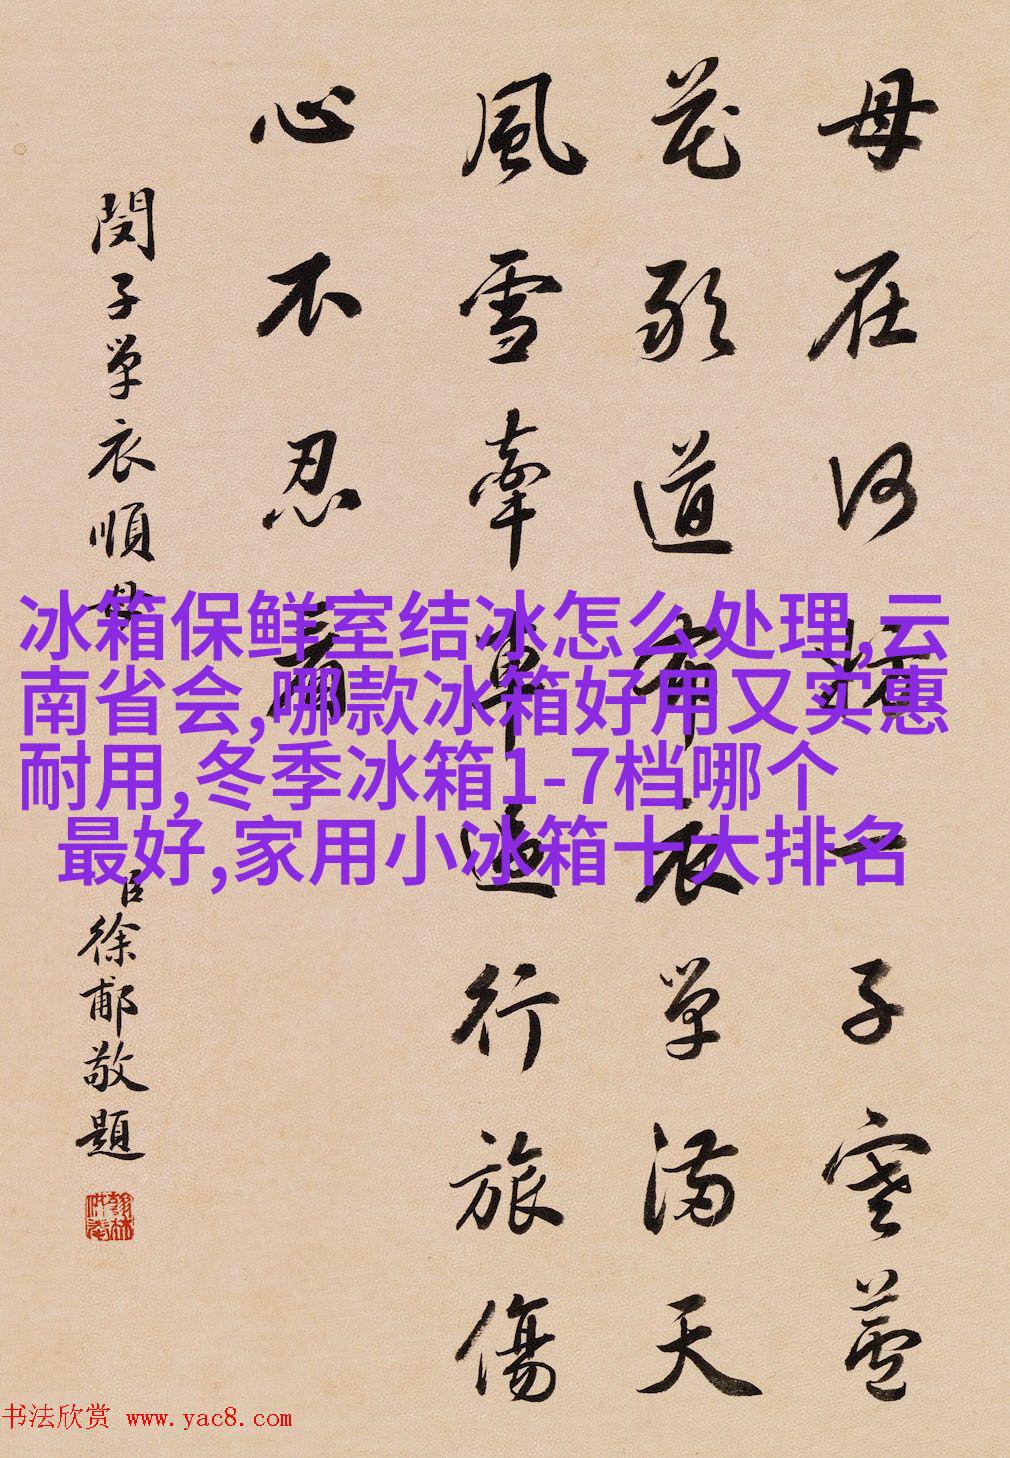 母在何一子寒蘆
花歌道布衣單滿天
風雪牽車行旅傷
心不忍
閔子單衣順母
臣徐郙敬題
翰林供奉
冰箱保鲜室结冰怎么处理,云
南省会,哪款冰箱好用又实惠
耐用,冬季冰箱1-7档哪个
最好,家用小冰箱十大排名
书法欣赏 www.yac8.com